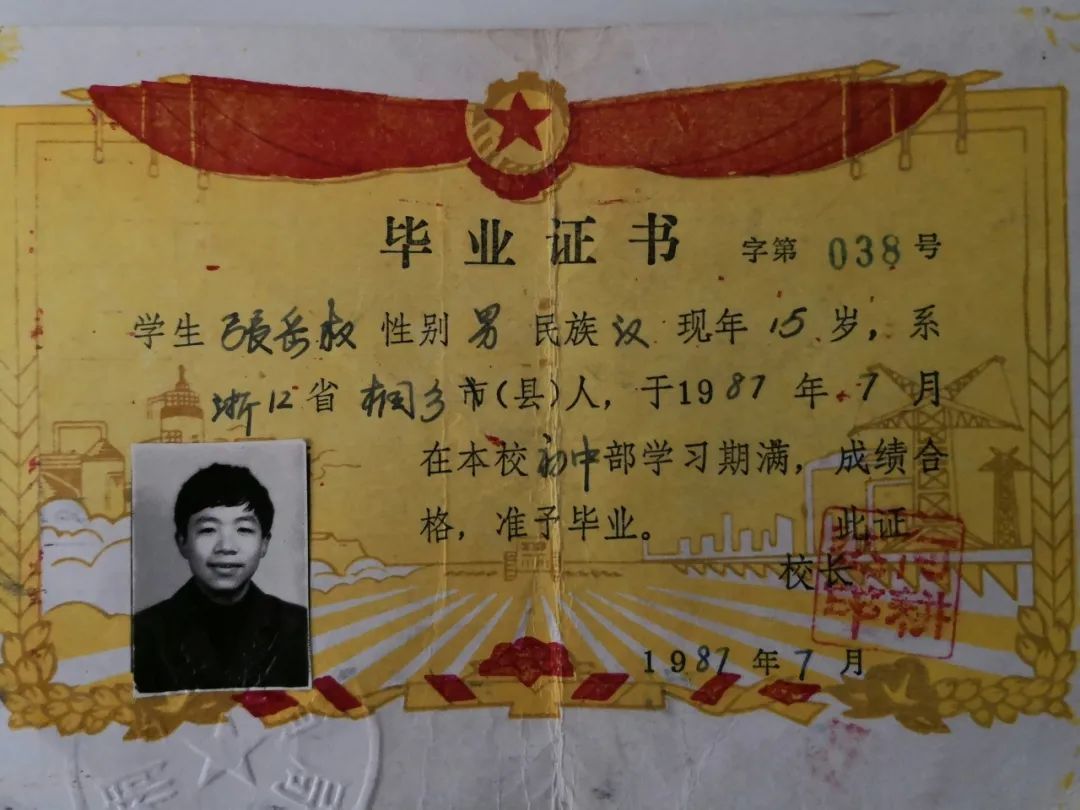 毕业证书 字第 038 号
学生 張岳权 性别 男 民族 汉 现年 15 岁，系
浙江省 桐乡市(县)人，于1987 年 7 月
在本校初中部学习期满，成绩合
格，准予毕业。 此证
校长
1987 年 7 月